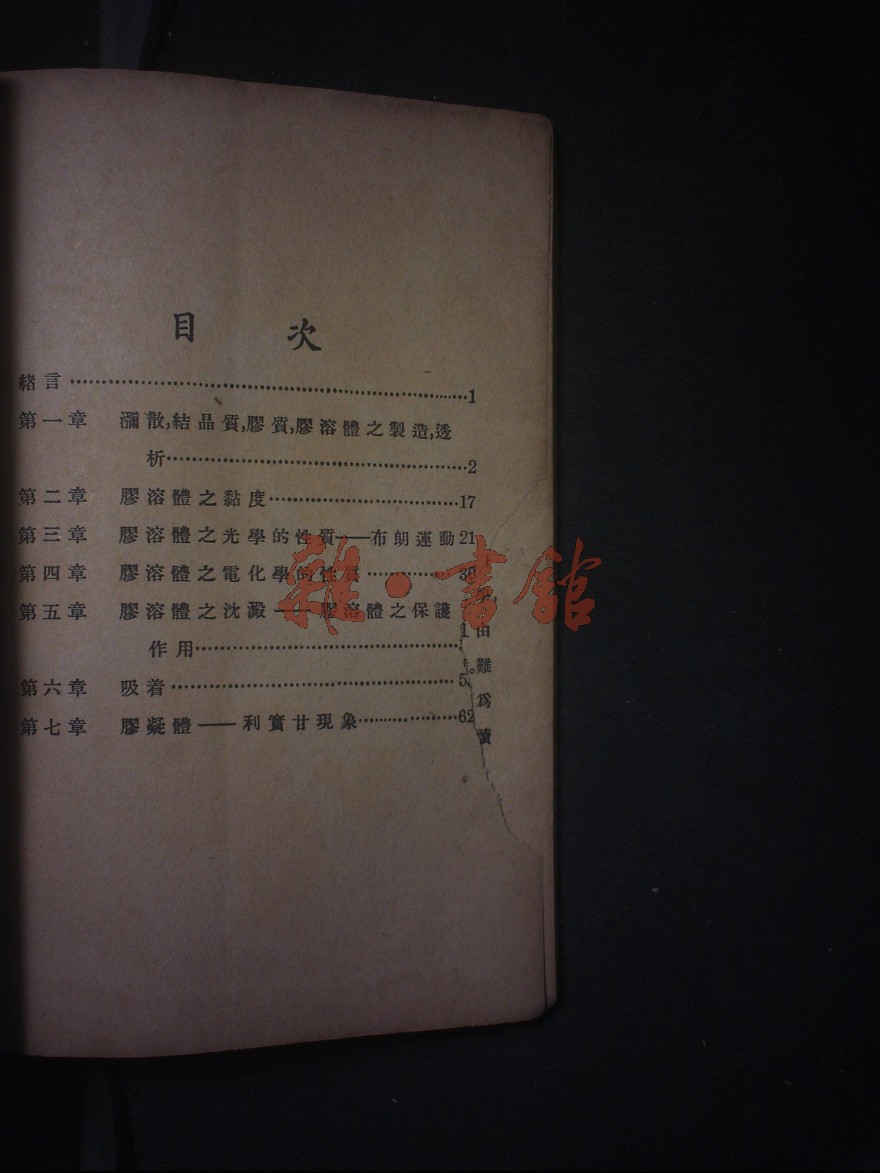 目次
緒言……1
第一章 瀰散,結晶質,膠質,膠溶體之製造,透
析……2
第二章 膠溶體之黏度……17
第三章 膠溶體之光學的性質——布朗運動21
第四章 膠溶體之電化學的性質……30
第五章 膠溶體之沈澱——膠溶體之保護
作用……
第六章 吸着……5
第七章 膠凝體——利賓甘現象……62
由
難
爲
讀
雜·書館